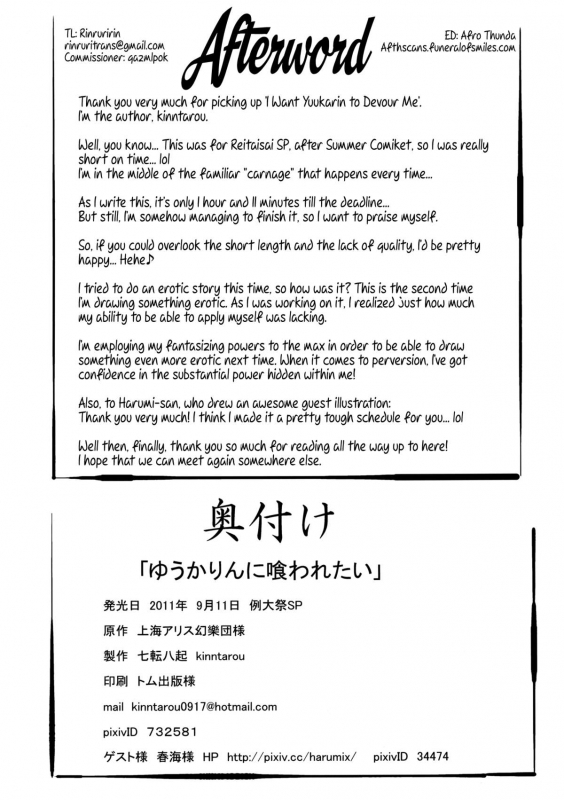 TL: Rinruririn
rinruritrans@gmail.com
Commissioner: qazmlpok
Afterword
ED: Afro Thunda
Afthscans.funeralofsmiles.com
Thank you very much for picking up 'I Want Yuukarin to Devour Me'.
I'm the author, kinntarou.
Well, you know... This was for Reitaisai SP, after Summer Comiket, so I was really
short on time... lol
I'm in the middle of the familiar "carnage" that happens every time...
As I write this, it's only 1 hour and 11 minutes till the deadline...
But still, I'm somehow managing to finish it, so I want to praise myself.
So, if you could overlook the short length and the lack of quality, I'd be pretty
happy... Hehe♪
I tried to do an erotic story this time, so how was it? This is the second time
I'm drawing something erotic. As I was working on it, I realized just how much
my ability to be able to apply myself was lacking.
I'm employing my fantasizing powers to the max in order to be able to draw
something even more erotic next time. When it comes to perversion, I've got
confidence in the substantial power hidden within me!
Also, to Harumi-san, who drew an awesome guest illustration:
Thank you very much! I think I made it a pretty tough schedule for you... lol
Well then, finally, thank you so much for reading all the way up to here!
I hope that we can meet again somewhere else.
奥付け
「ゆうかりんに喰われたい」
発光日 2011年 9月11日 例大祭SP
原作 上海アリス幻樂団様
製作 七転八起 kinntarou
印刷 トム出版様
mail kinntarou0917@hotmail.com
pixivID 732581
ゲスト様 春海様 HP http://pixiv.cc/harumix/ pixivID 34474